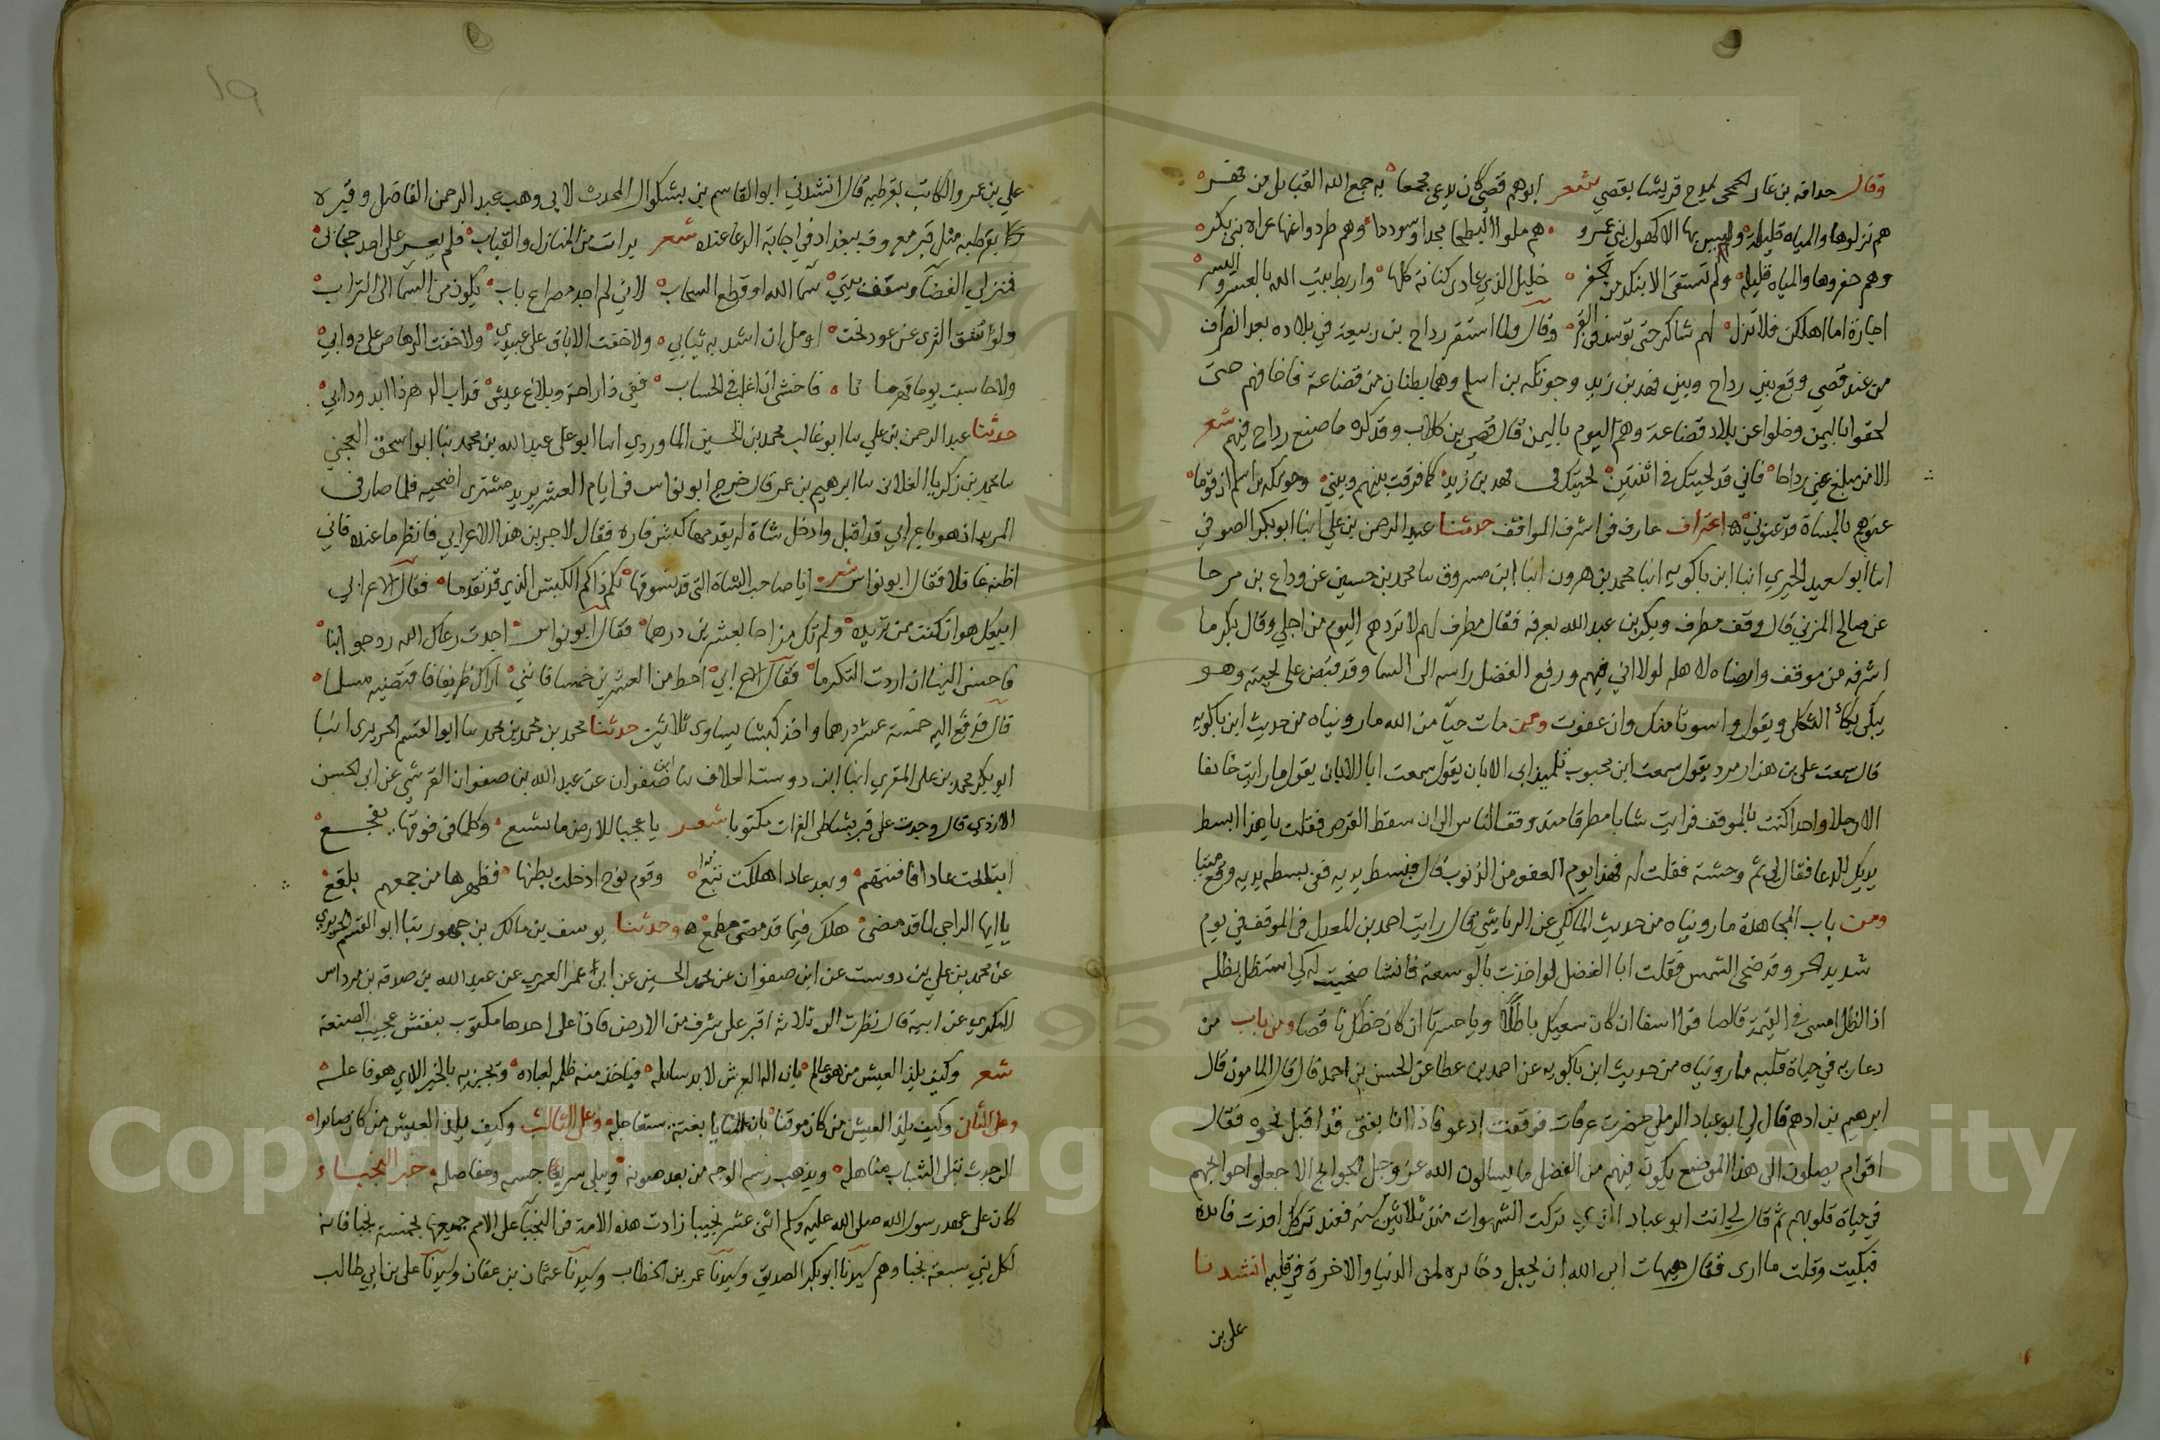 وقال حذافه بن غانم الجمحي يمدح قريشا بقصي شعر ابوهم قصي كان يدعى مجمعا به جمع الله القبايل من فهر
هم نزلوها والمياه قليلة وليس بها الا كهول بني عمرو هم ملوا البطحا مجدا وسوددا وهم طردوا عنها غواة بني بكر
وهم حفروها والمياه قليلة ولم تستقى الا بنكد من الحفر خليل الذي عادى كنانة كلها واربط بيت الله بالعسر واليسر
لهم شاكر حتى توسد في القبر وقال ولما استقر رداح بن ربيعة في بلاده بعد انصراف
من عند قصي وقع بيني رداح وبين فهد بن زيد وحوتكه بن اسلم وهما بطنان من قضاعة فاخافهم حتى
لحقوا باليمن وخلوا عن بلاد قضاعة وهم اليوم باليمن قال قصي بن كلاب وقد كره ما صنع رداح فيهم شعر
الا من مبلغ عني رداحا فاني قد لحيتك في اثنتين لحيتك في فهد بن زيد كما فرقت بينهم وبيني وحوتكه بن اسلم ان قوما
عنوهم بالمساة قد عنوني اعتراف عارف في اشرف المواقف حدثنا عبد الرحمن بن علي انبا ابو بكر الصوفي
انبا ابو سعيد الحيري انبا ابن باكويه انبا محمد بن هرون انبا ابن مسروق سا محمد بن حسين عن وداع بن مرحا
عن صالح المزني قال وقف مطرف وبكر بن عبد الله بعرفه فقال مطرف لهم لا تردهم اليوم من اجلي وقال بكر ما
اشرفه من موقف وارضاه لاهله لولا اني فيهم ورفع الفضل راسه الى السما وقد قبض على لحيته وهو
يبكي بكاء الثكلى ويقول واسوتا منك وان عفوت ومن مات حيا من الله ما رويناه من حديث ابن باكويه
قال سمعت علي بن هزارمرد يقول سمعت ابن محبوب تلميذ ابي الاديان يقول سمعت ابا الاديان يقول ما رايت خايفا
الا رجلا واحدا كنت بالموقف فرايت شابا مطرقا منذ وقف الناس الى ان سقط القرص فقلت يا هذا ابسط
يديك للدعا فقال لي ثم وحشة فقلت له فهذا يوم العفو من الذنوب قال فبسط يديه ففي بسطه يديه وقع ميتا
ومن باب المجاهدة ما رويناه من حديث المالكي عن الرياشي قال رايت احمد بن المعدل في الموقف في يوم
شديد الحر وقد ضحى الشمس فقلت ابا الفضل لو اخذت بالوسعة فانشا ضحيت له كي استظل بظله
اذا الظل امسى في القيمة قالصا فوا اسفا ان كان سعيك باطلا ويا حسرتا ان كان حظك ناقصا ومن باب من
دعا ربه في حياة قلبه ما رويناه من حديث ابن باكويه عن احمد بن عطا عن الحسن بن احمد قال قال المامون قال
ابرهيم بن ادهم قال لي ابو عباد الرملي حضرت عرفات فوقفت ادعو فاذا انا بفتى قد اقبل نحوه فقال
اقوام يصلون الى هذا الموضع يكون فيهم من الفضل ما يسالون الله عز وجل الحوايج الا جعلوا حوايجهم
في حياة قلوبهم ثم قال لي انت ابو عباد الذي تركت الشهوات منذ ثلاثين سنة فعند تركك اخذت فايدة
فبكيت وقلت ما ارى فقال هيهات ابى الله ان يجعل دخايره لمن الدنيا والاخرة في قلبه انشدنا
على بن
علي بن عمرو الكاتب بقرطبه قال انشدني ابو القاسم بن بشكوال المحدث لابي وهب عبد الرحمن الفاضل وقبره
بقرطبه مثل قبر معروف ببغداد في اجابة الدعا عنده شعر برات من المنازل والقباب فلم يعسر على احد حجابي
فمنزلي الفضا وسقف بيتي سما الله او قطع السحاب لاني لم اجد مصراع باب يكون من السما الى التراب
ولا انشق الثرى عن عود تخت اومل ان اشد به ثيابي ولا خفت الاباق على عبيدي ولا خفت الرهاص على دوابي
ولا حاسبت يوما قهرمانا فاخشى ان اغلب في الحساب ففي ذا راحة وبلاغ عيش فداب الدهر ذا ابدا ودابي
حدثنا عبد الرحمن بن علي سا ابو غالب محمد بن الحسين الماوردي انبا ابو علي عبد الله بن محمد نبا ابو اسحق العجمي
سا محمد بن زكريا الغلابي سا ابرهيم بن عمر قال خرج ابو نواس في ايام العشر يريد مشترى اضحيه فلما صار في
المربد اذ هو باعرابي قد اقبل وادخل شاة له يقدمها كبش فاره فقال لاجربن هذا الاعرابي فانظر ما عنده فاني
اظنه عاقلا فقال ابو نواس شعر ايا صاحب الشاة التي قد تسوقها بكم ذاكم الكبش الذي قد تقدما فقال الاعرابي
ابيعكه ان كنت ممن تريده ولم تك مزاحا بعشرين درهما فقال ابو نواس اجدت رعاك الله رد جوابنا
فاحسن الينا ان اردت التكرما فقال الاعرابي احط من العشرين خمسا فانني اراك ظريفا فاقبضنيه مسلما
قال فدفع اليه خمسة عشر درهما واخذ كبشا يساوى ثلاثين حدثنا محمد بن محمد بن محمد سا ابو القسم الحريرى انبا
ابو بكر محمد بن على المقري انبا ابن دوست العلاف سا ابن صفوان عن عبد الله بن صفوان القرشي عن ابي الحسن
الازدي قال وجدت على قبر بشاطى الفرات مكتوبا شعر يا عجبا للارض ما تشبع وكل من فوقها يفجع
ابتلعت عادا فافنتهم وبعد عاد اهلكت تبعا وقوم نوح ادخلت بطنها فظهرها من جمعهم بلقع
يا ايها الراجي لما قد مضى هل لك فيما قد مضى مطمع وحدثنا يوسف بن مالك بن جمهور نبا ابو القسم الحريري
عن محمد بن علي بن دوست عن ابن صفوان عن محمد الحسين عن ابي عمر العمري عن عبيد الله بن صدقه بن مرداس
البكري عن ابيه قال نظرت الى ثلاثه اقبر على شرف من الارض فاذا على احدها مكتوب بنقش عجيب الصنعة
شعر وكيف يلذ العيش من هو عالم بان اله العرش لا بد سايله فياخذ منه ظلمه لعباده ويجزيه بالخير الذي هو فاعله
وعلى الثاني وكيف يلذ العيش من كان موقنا بان المنايا بغتة ستعاجله وعلى الثالث وكيف يلذ العيش من كان صايرا
الى جدث تبلى الشباب مناهله ويذهب رسم الوجه من بعد صونه ويبلى سريعا جسمه ومفاصله خبر النجباء
كان على عهد رسول الله صلى الله عليه وسلم اثنى عشر نجيبا زادت هذه الامة في النجبا على الامم جميعها بخمسة نجبا فانه
لكل نبي سبعة نجبا وهم سيدنا ابو بكر الصديق وسيدنا عمر بن الخطاب وسيدنا عثمان بن عفان وسيدنا على بن ابي طالب
Copyright © King Saud University
1957